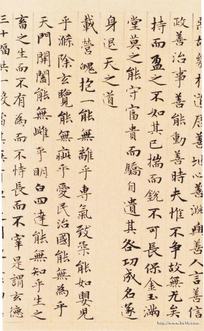 善地心善淵與善仁言善信
政善治事善能動善時夫惟不爭故無尤矣
持而盈之不如其已揣而銳不可長保金玉滿
堂莫之能守富貴而驕自遺其咎功成名遂
身退天之道
載營魄抱一能無離乎專氣致柔能如嬰兒
乎滌除玄覽能無疵乎愛民治國能無為乎
天門開闔能無雌乎明白四達能無知乎生之
畜之生而不有為而不恃長而不宰是謂玄德
三十輻共一